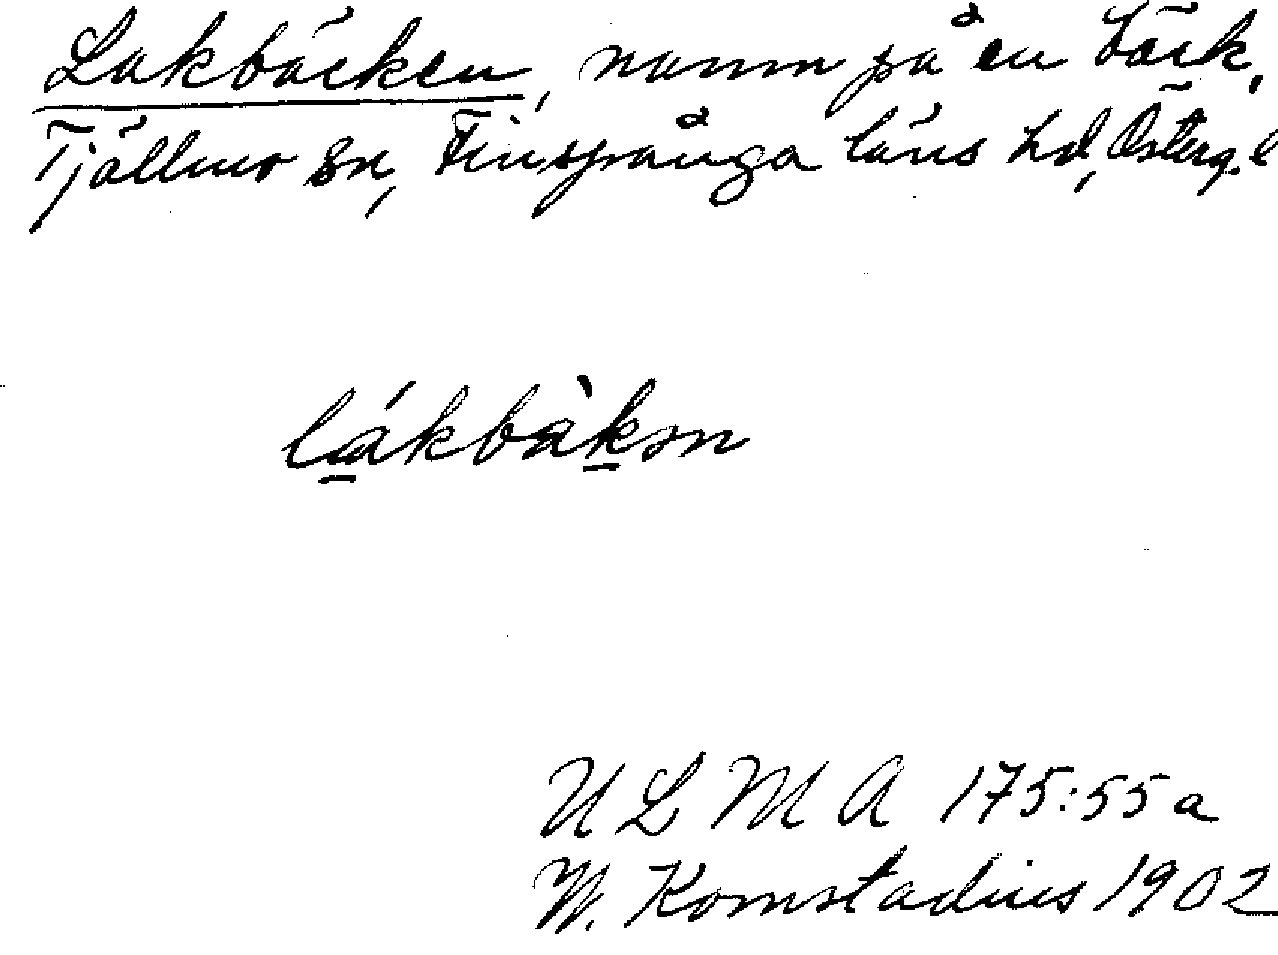 Lakbäcken, namn på en bäck,
Tjällmo sn, Finspånga läns hd, Österg. l
lákbàkən
ULMA 175:55a
W. Komstadius 1902